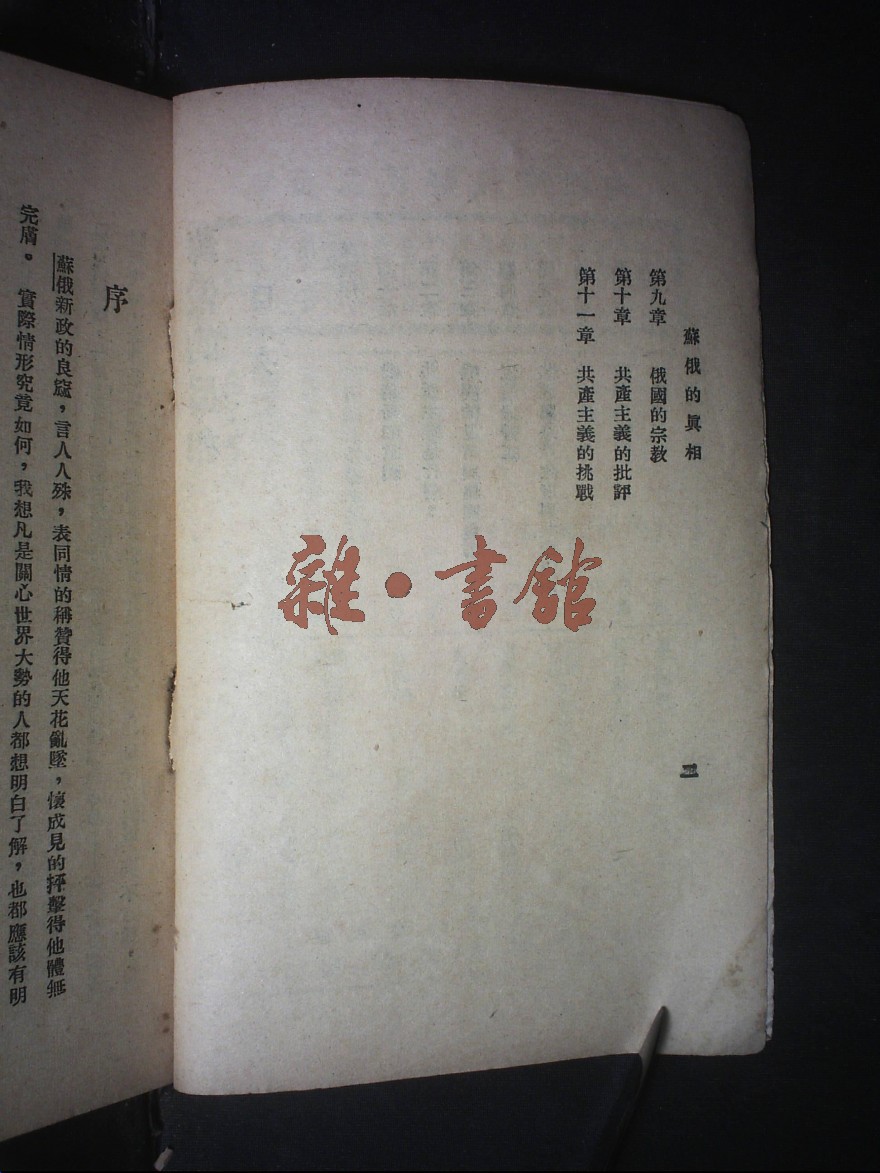 蘇俄的眞相
第九章　俄國的宗教
第十章　共產主義的批評
第十一章　共產主義的挑戰
二
雜・書館
序
蘇俄新政的良窳，言人人殊，表同情的稱贊得他天花亂墜，懷成見的抨擊得他體無
完膚。　實際情形究竟如何，我想凡是關心世界大勢的人都想明白了解，也都應該有明